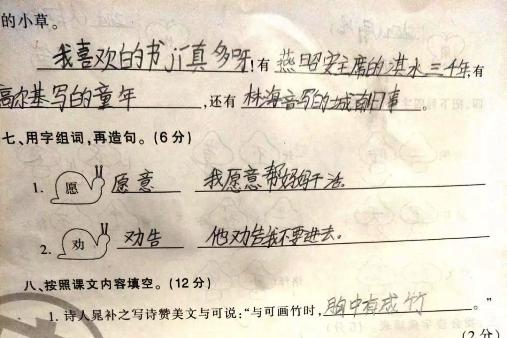 的小草。
我喜欢的书ji真多呀!有燕昭安主席的洪水三千年,有
高尔基写的童年,还有林海音写的城南旧事。
七、用字组词,再造句。(6分)
1. 愿 愿意 我愿意帮妈妈干活。
2. 劝 劝告 他劝告我不要进去。
八、按照课文内容填空。(12分)
1. 诗人晁补之写诗赞美文与可说:“与可画竹时,胸中有成竹。”
(2分)